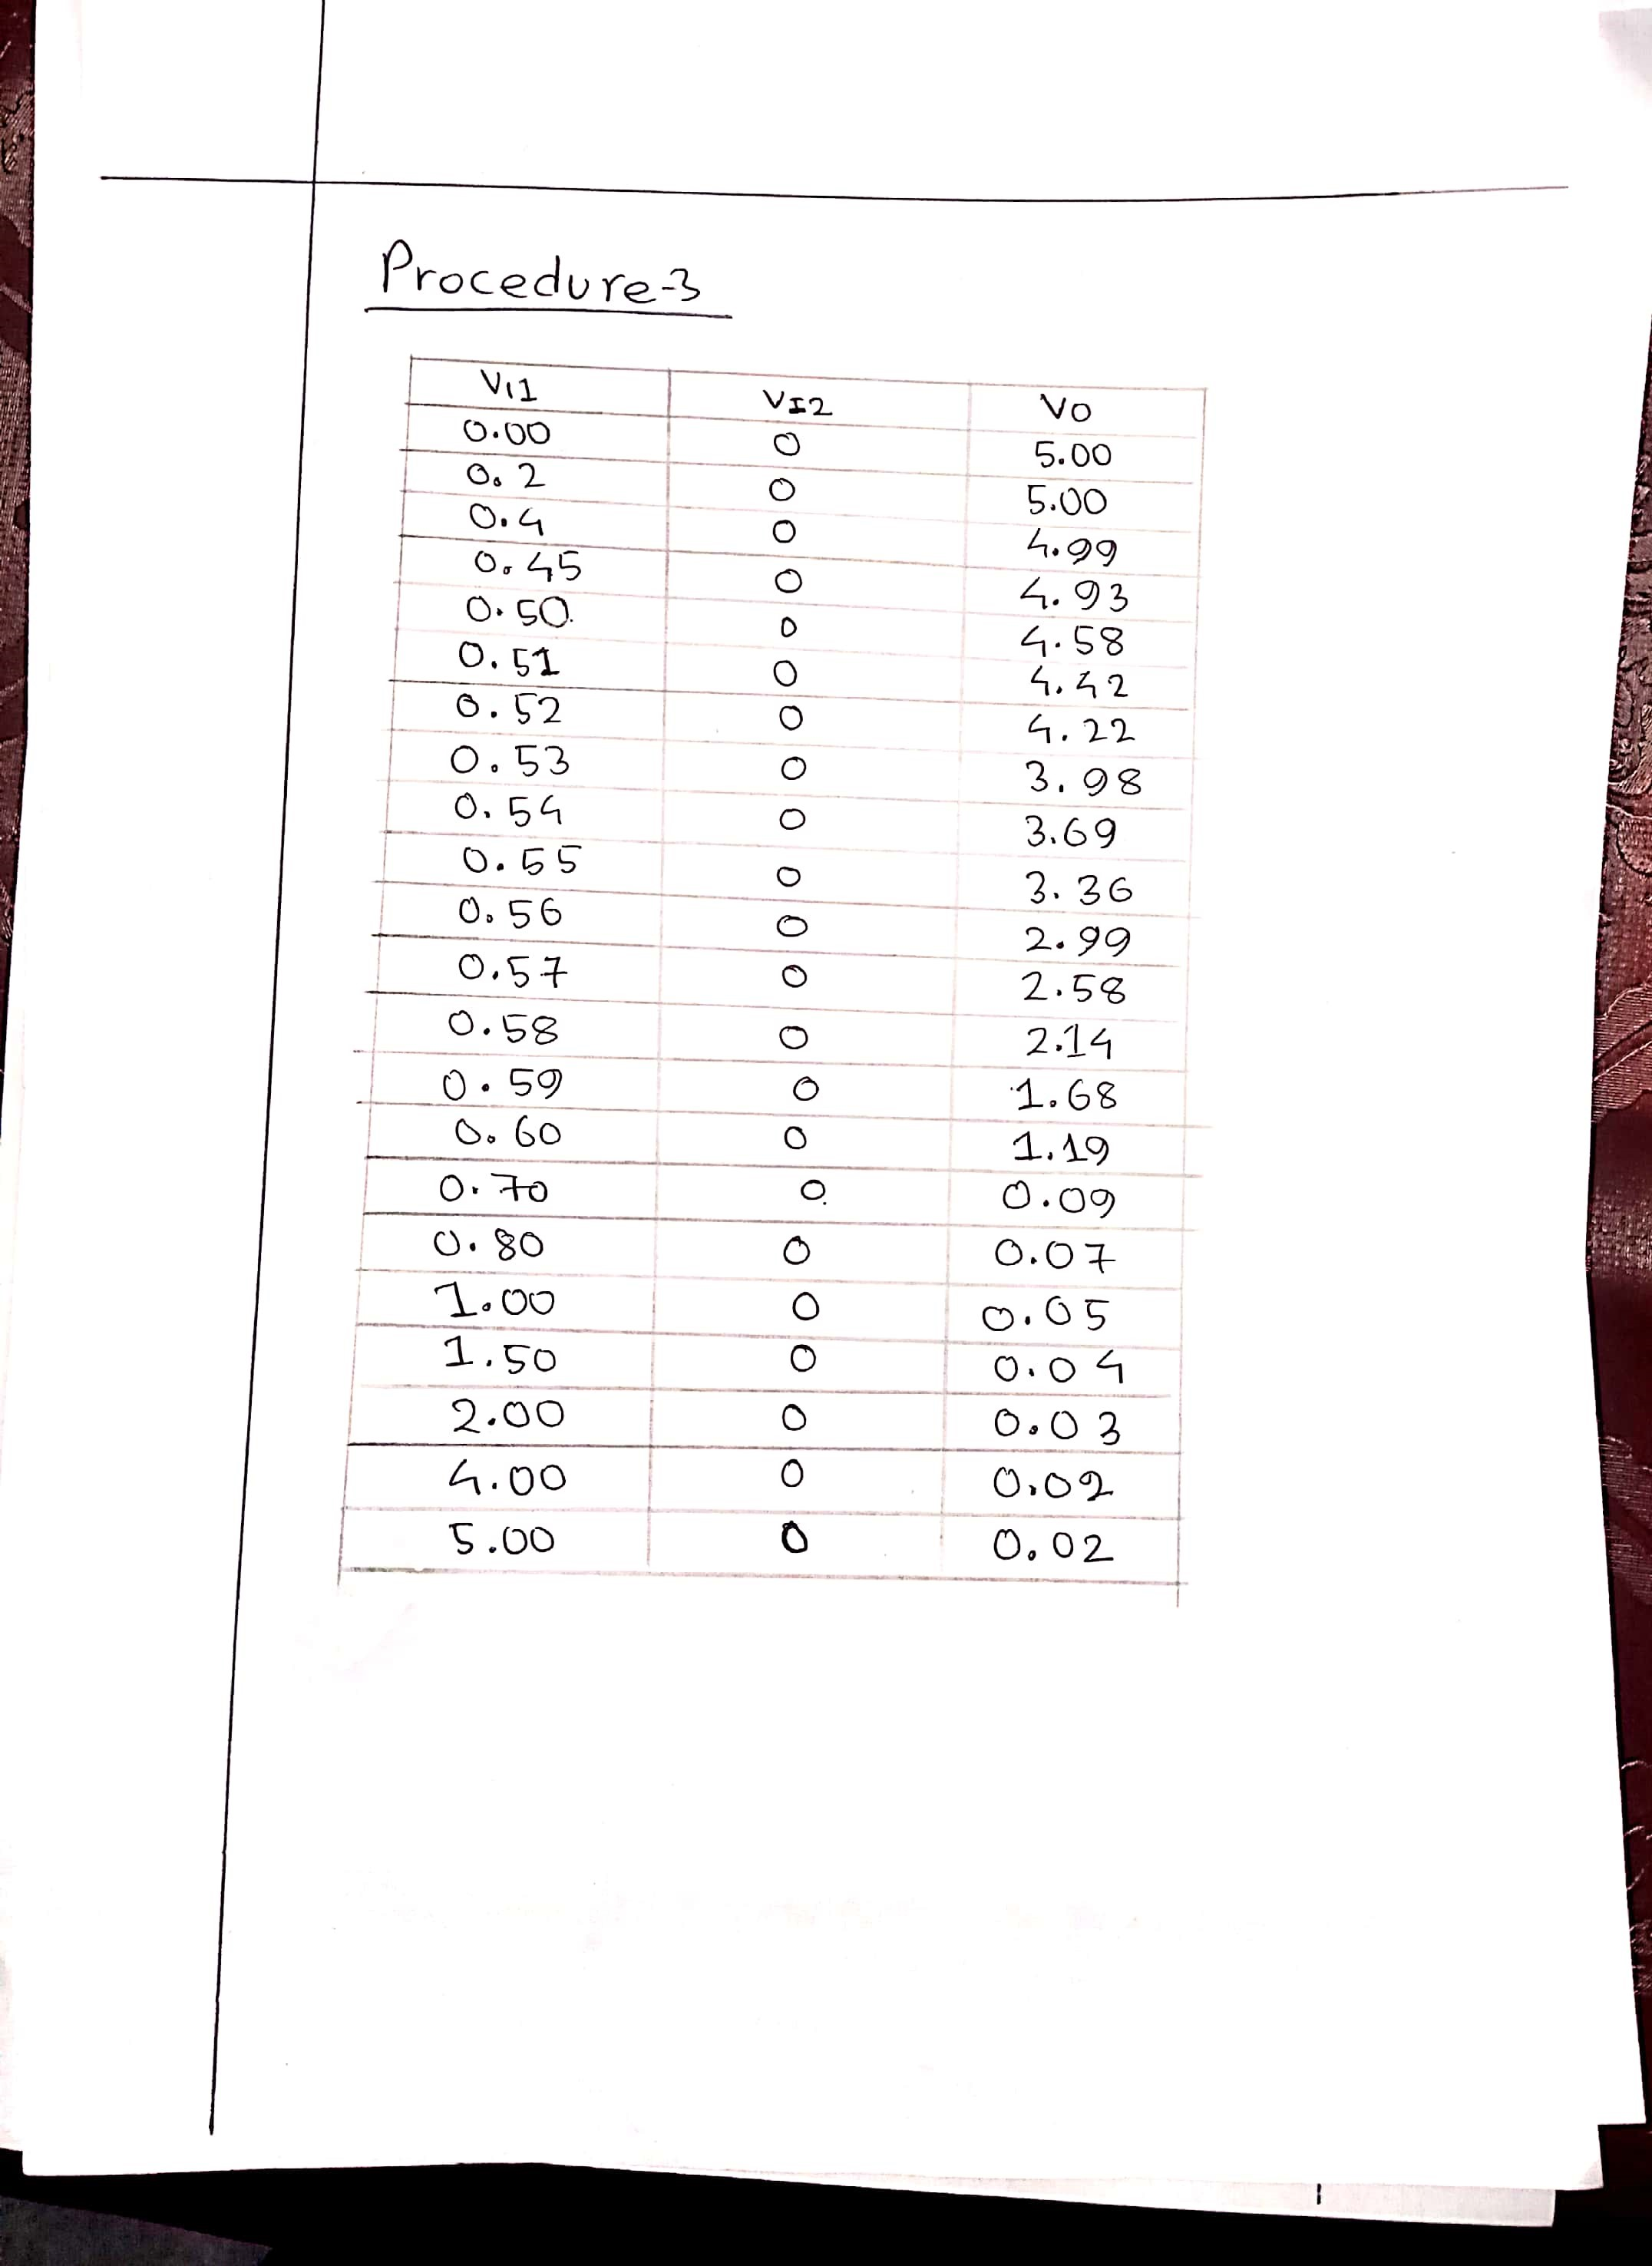 Procedure-3
VI1 VI2 VO
0.00 0 5.00
0.2 0 5.00
0.4 0 4.99
0.45 0 4.93
0.50 0 4.58
0.51 0 4.42
0.52 0 4.22
0.53 0 3.98
0.54 0 3.69
0.55 0 3.36
0.56 0 2.99
0.57 0 2.58
0.58 0 2.14
0.59 0 1.68
0.60 0 1.19
0.70 0 0.09
0.80 0 0.07
1.00 0 0.05
1.50 0 0.04
2.00 0 0.03
4.00 0 0.02
5.00 0 0.02